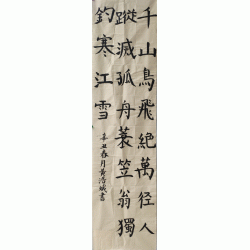 千山鳥飛絕萬径人
蹤滅孤舟蓑笠翁獨
釣寒江雪
辛丑春月黄書